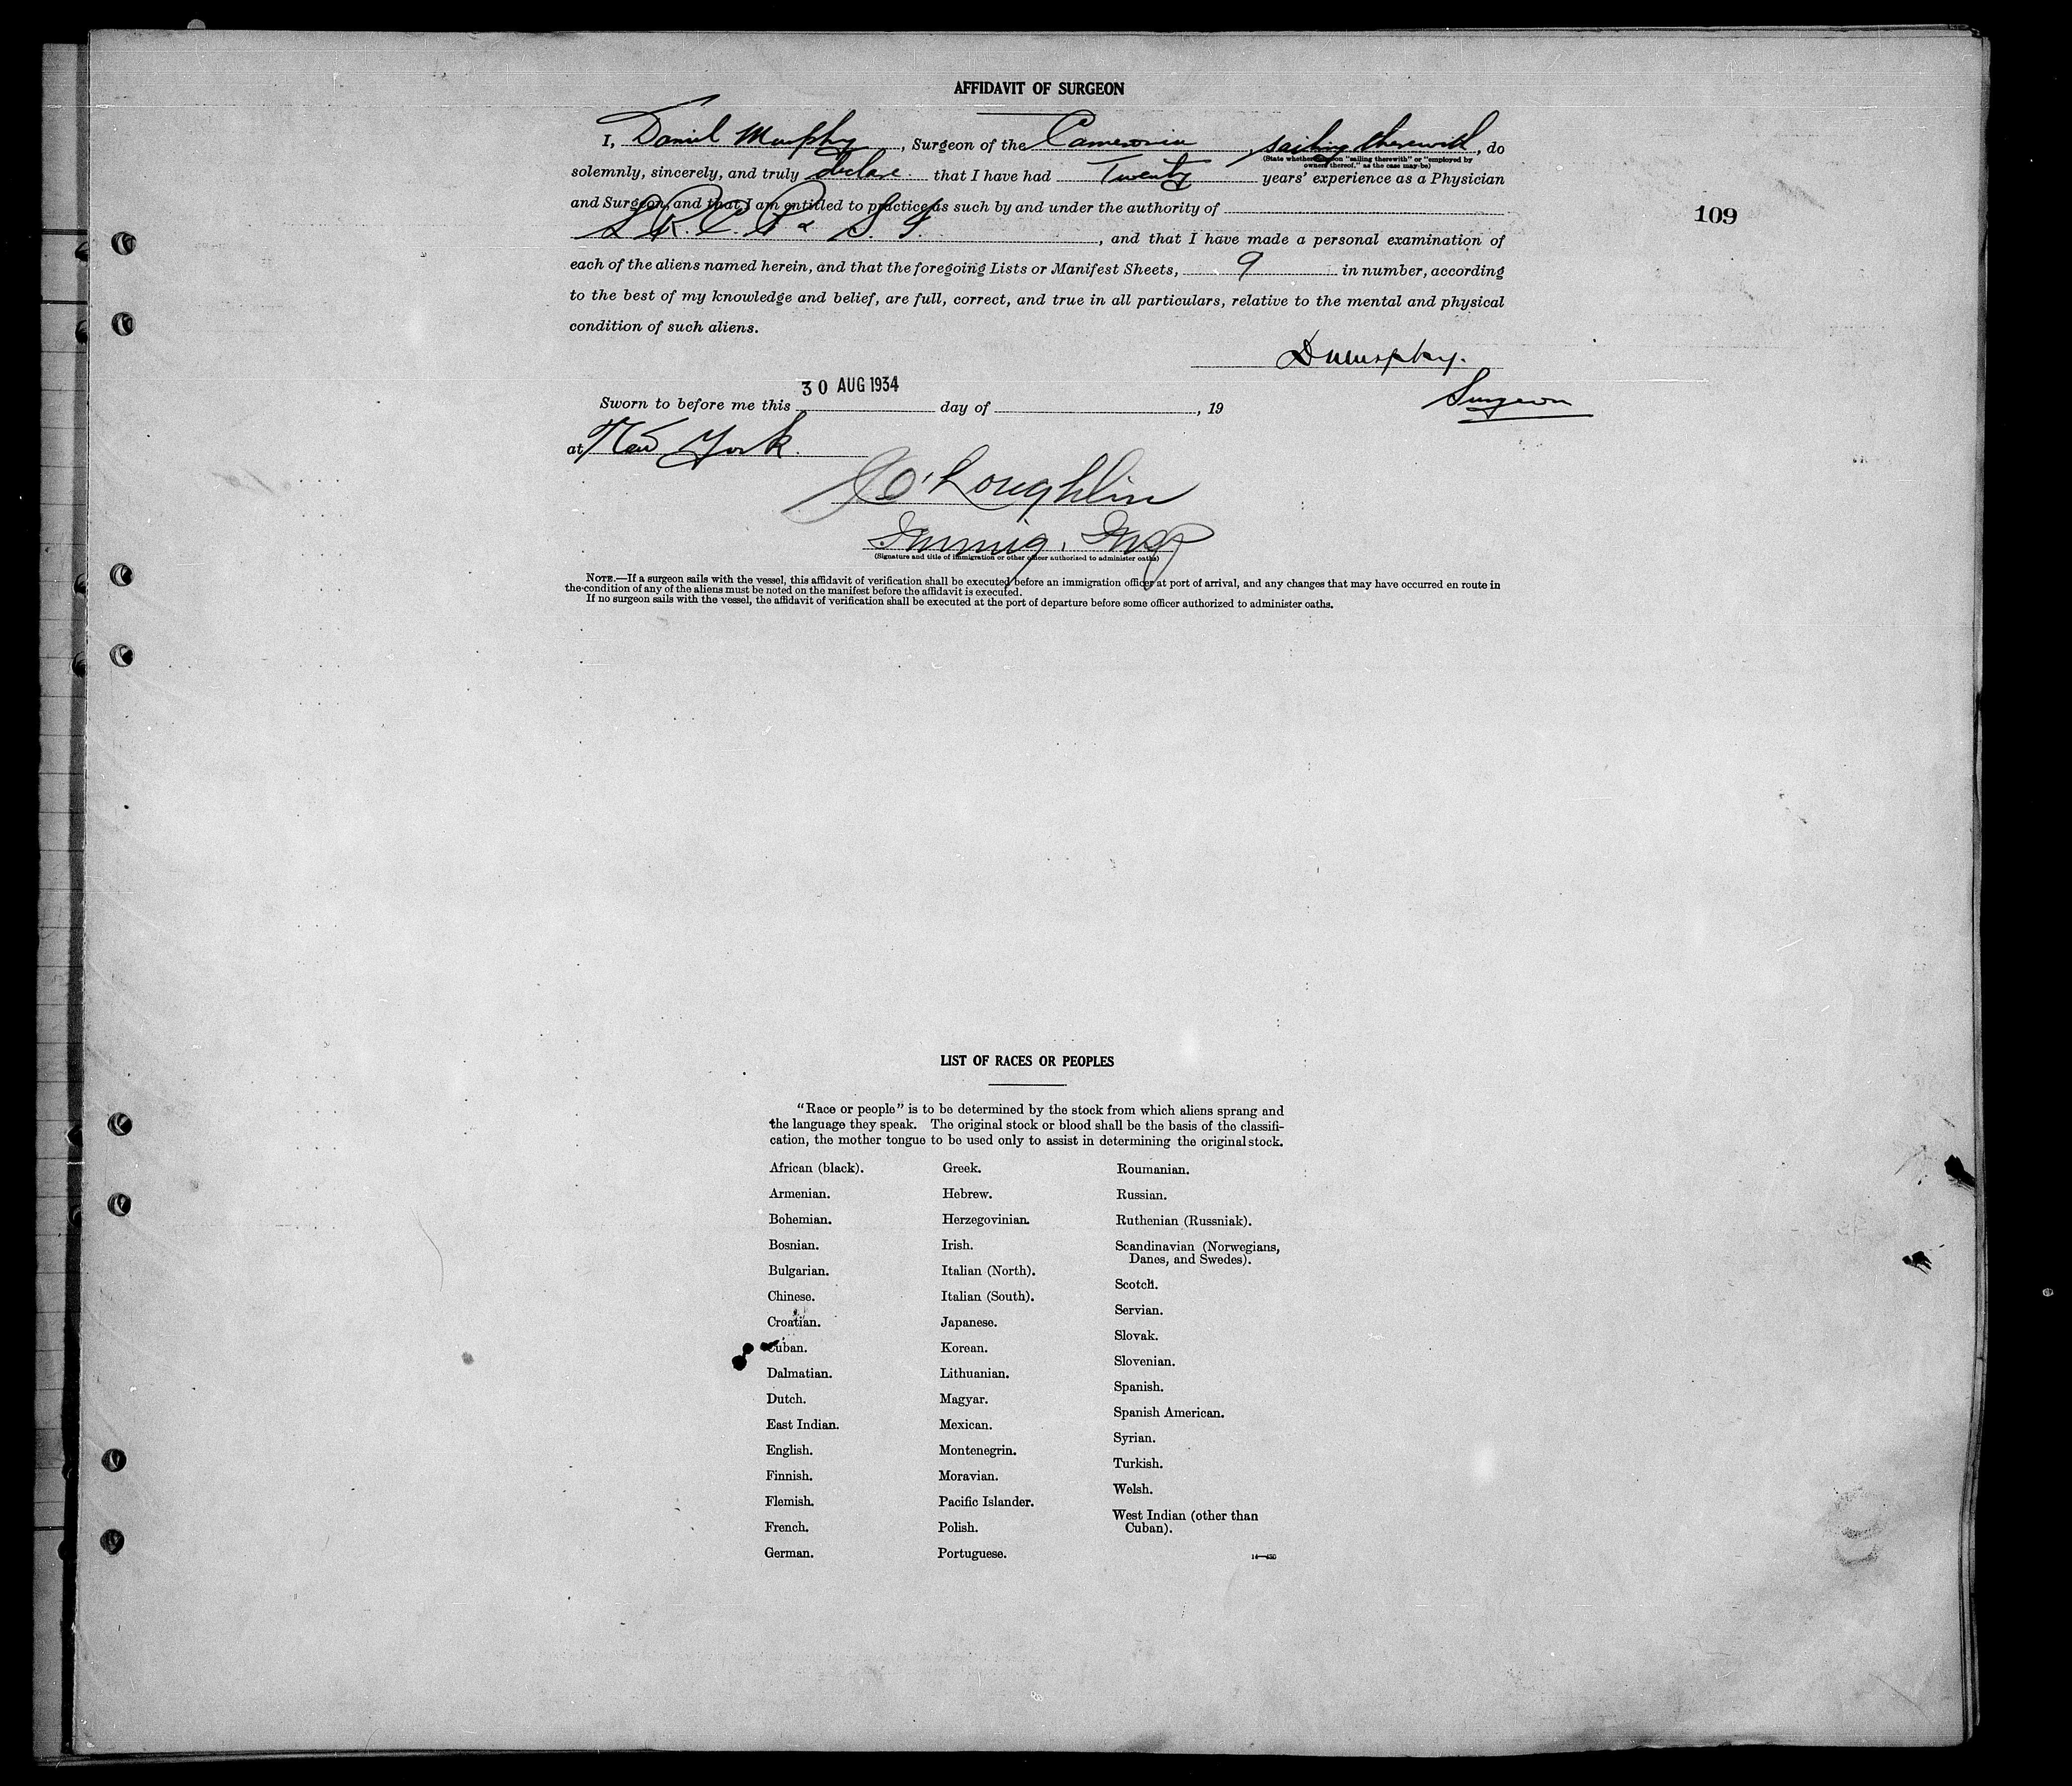 AFFIDAVIT OF SURGEON
I, Daniel Murphy, Surgeon of the Cameronia, sailing therewith, do
(State whether upon "sailing therewith" or "employed by
owners thereof," as the case may be)
solemnly, sincerely, and truly declare that I have had Twenty years' experience as a Physician
and Surgeon, and that I am entitled to practice as such by and under the authority of
L R. C. P & S. I., and that I have made a personal examination of
109
each of the aliens named herein, and that the foregoing Lists or Manifest Sheets, 9 in number, according
to the best of my knowledge and belief, are full, correct, and true in all particulars, relative to the mental and physical
condition of such aliens.
D Murphy.
Surgeon
30 AUG 1934
Sworn to before me this day of , 19
at New York.
O'Loughlin
Immig. Insp
(Signature and title of immigration or other officer authorized to administer oaths)
NOTE.—If a surgeon sails with the vessel, this affidavit of verification shall be executed before an immigration officer at port of arrival, and any changes that may have occurred en route in
the condition of any of the aliens must be noted on the manifest before the affidavit is executed.
If no surgeon sails with the vessel, the affidavit of verification shall be executed at the port of departure before some officer authorized to administer oaths.
LIST OF RACES OR PEOPLES
"Race or people" is to be determined by the stock from which aliens sprang and
the language they speak. The original stock or blood shall be the basis of the classifi-
cation, the mother tongue to be used only to assist in determining the original stock.
African (black).
Armenian.
Bohemian.
Bosnian.
Bulgarian.
Chinese.
Croatian.
Cuban.
Dalmatian.
Dutch.
East Indian.
English.
Finnish.
Flemish.
French.
German.
Greek.
Hebrew.
Herzegovinian.
Irish.
Italian (North).
Italian (South).
Japanese.
Korean.
Lithuanian.
Magyar.
Mexican.
Montenegrin.
Moravian.
Pacific Islander.
Polish.
Portuguese.
Roumanian.
Russian.
Ruthenian (Russniak).
Scandinavian (Norwegians,
Danes, and Swedes).
Scotch.
Servian.
Slovak.
Slovenian.
Spanish.
Spanish American.
Syrian.
Turkish.
Welsh.
West Indian (other than
Cuban).